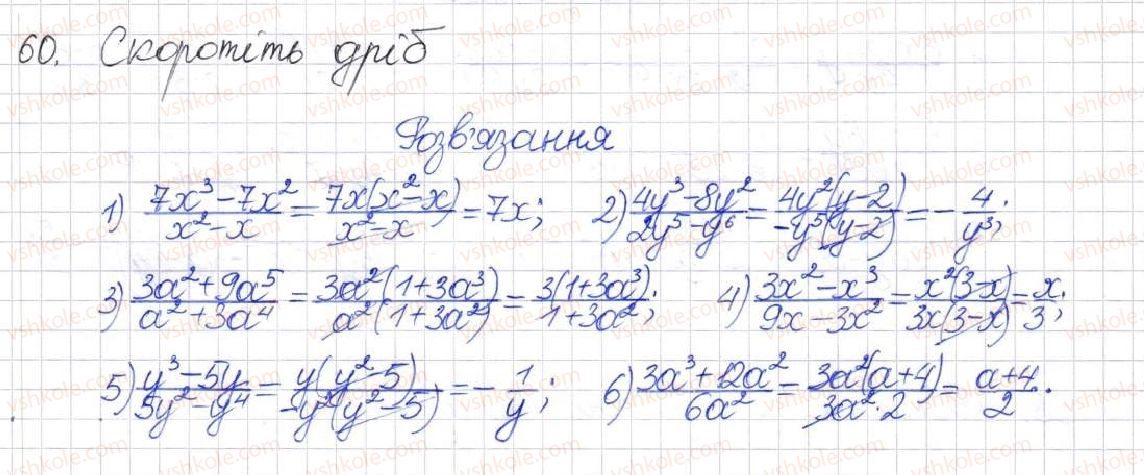 60. Скоротіть дріб
Розв'язання
1) (7x³ - 7x²)/(x² - x) = 7x(x² - x)/(x² - x) = 7x; 2) (4y³ - 8y²)/(2y⁵ - y⁶) = 4y²(y - 2)/(-y⁵(y - 2)) = - 4/y³;
3) (3a² + 9a⁵)/(a² + 3a⁴) = 3a²(1 + 3a³)/(a²(1 + 3a²)) = 3(1 + 3a³)/(1 + 3a²); 4) (3x² - x³)/(9x - 3x²) = x²(3 - x)/(3x(3 - x)) = x/3;
5) (y³ - 5y)/(5y² - y⁴) = y(y² - 5)/(-y²(y² - 5)) = - 1/y; 6) (3a³ + 12a²)/(6a²) = 3a²(a + 4)/(3a² · 2) = (a + 4)/2.